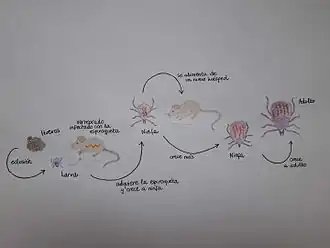 Huevos
eclosión
Larva
Vertebrado
infectado con la
espiroqueta
adquiere la espiroqueta
y crece a ninfa
Ninfa
se alimenta de
un nuevo huésped
crece más
Ninfa
crece
a adulto
Adulto